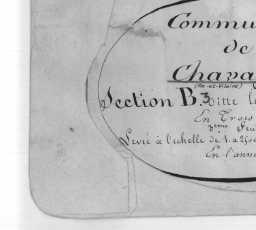 Commu
de
Chava
(Ille-et-Vilaine)
Section B.3 Dite l
En Trois
3ème Feu
Levée à l'échelle de 1 à 2500
En l'anné